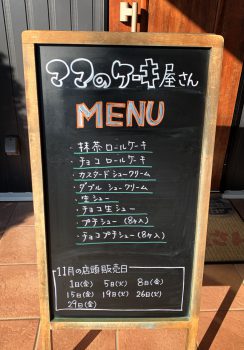 ママのケーキ屋さん
MENU
・抹茶ロールケーキ
・チョコロールケーキ
・カスタードシュークリーム
・ダブルシュークリーム
・生シュー
・チョコ生シュー
・プチシュー(8ヶ入)
・チョコプチシュー(8ヶ入)
11月の店頭販売日
1日(金) 5日(火) 8日(金)
15日(金) 19日(火) 26日(火)
29日(金)